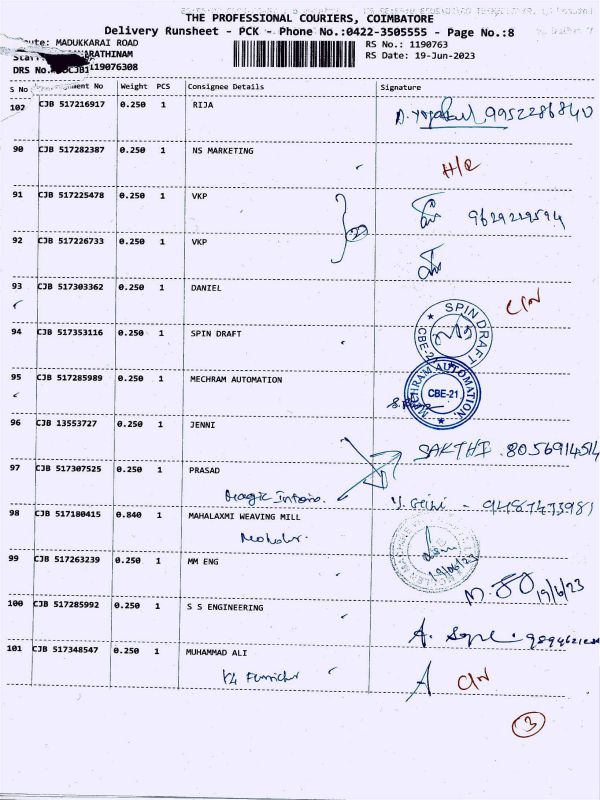 THE PROFESSIONAL COURIERS, COIMBATORE
Delivery Runsheet - PCK - Phone No.:0422-3505555 - Page No.:8
Route: MADUKKARAI ROAD
RS No.: 1190763
ARATHINAM
RS Date: 19-Jun-2023
DRS No. 119076308
S No No Weight PCS Consignee Details Signature
102 CJB 517216917 0.250 1 RIJA 9952286840
90 CJB 517282387 0.250 1 NS MARKETING
91 CJB 517225478 0.250 1 VKP 9629229594
92 CJB 517226733 0.250 1 VKP
93 CJB 517303362 0.250 1 DANIEL
94 CJB 517353116 0.250 1 SPIN DRAFT SPIN DRAFT CBE-21
95 CJB 517285989 0.250 1 MECHRAM AUTOMATION MECHRAM AUTOMATION CBE-21
96 CJB 13553727 0.250 1 JENNI SAKTHI 8056914514
97 CJB 517307525 0.250 1 PRASAD
9487473981
98 CJB 517180415 0.840 1 MAHALAXMI WEAVING MILL
19/06/23
99 CJB 517263239 0.250 1 MM ENG 19/6/23
100 CJB 517285992 0.250 1 S S ENGINEERING
101 CJB 517348547 0.250 1 MUHAMMAD ALI
3